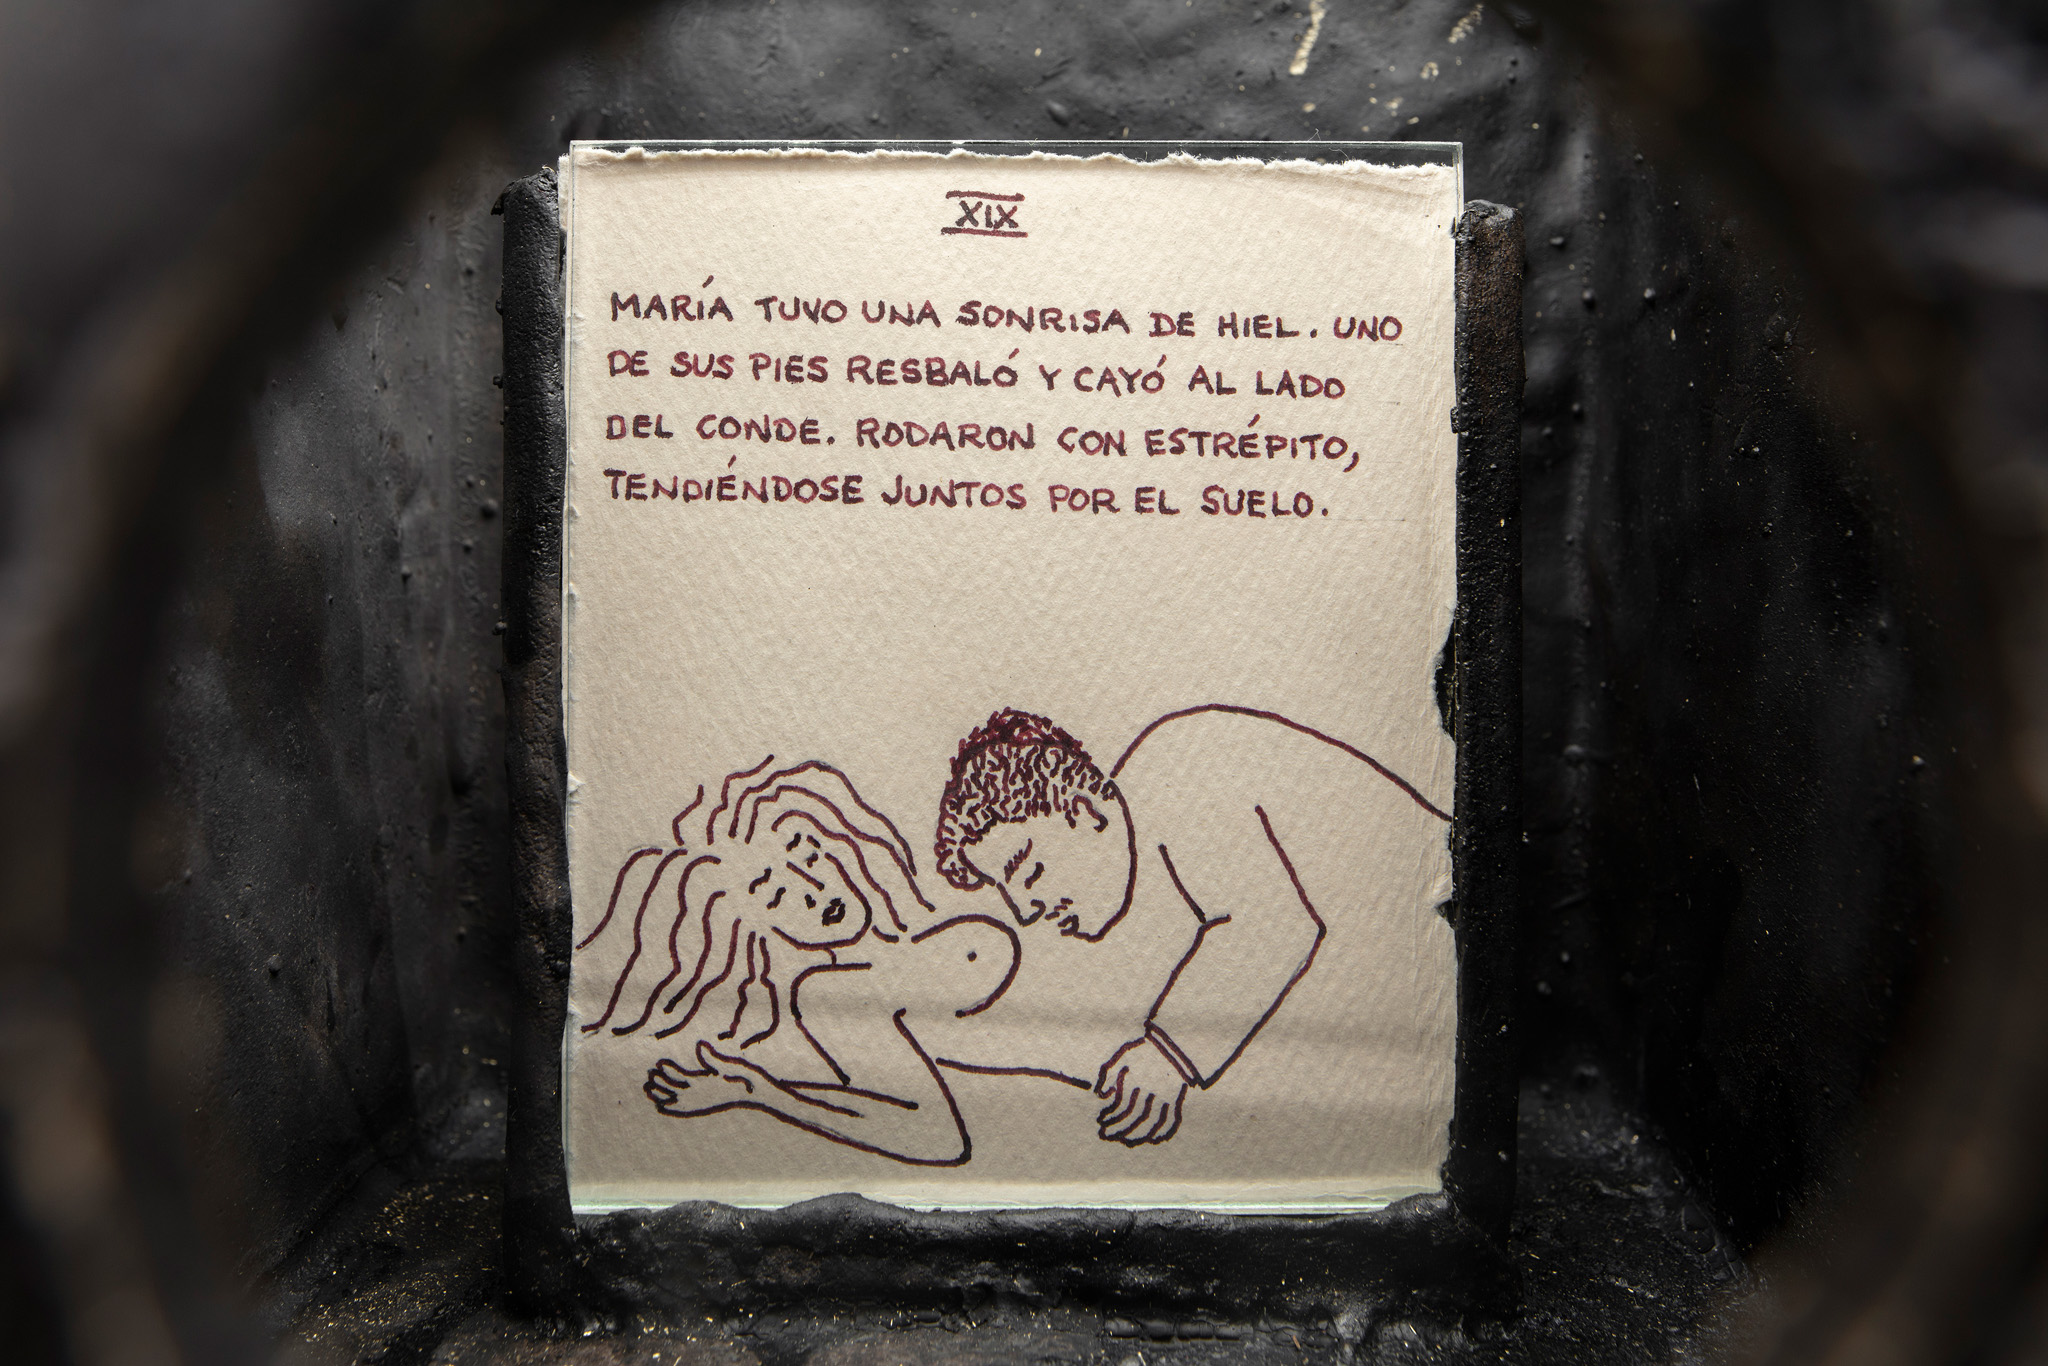 XIX
MARÍA TUVO UNA SONRISA DE HIEL. UNO
DE SUS PIES RESBALÓ Y CAYÓ AL LADO
DEL CONDE. RODARON CON ESTRÉPITO,
TENDIÉNDOSE JUNTOS POR EL SUELO.